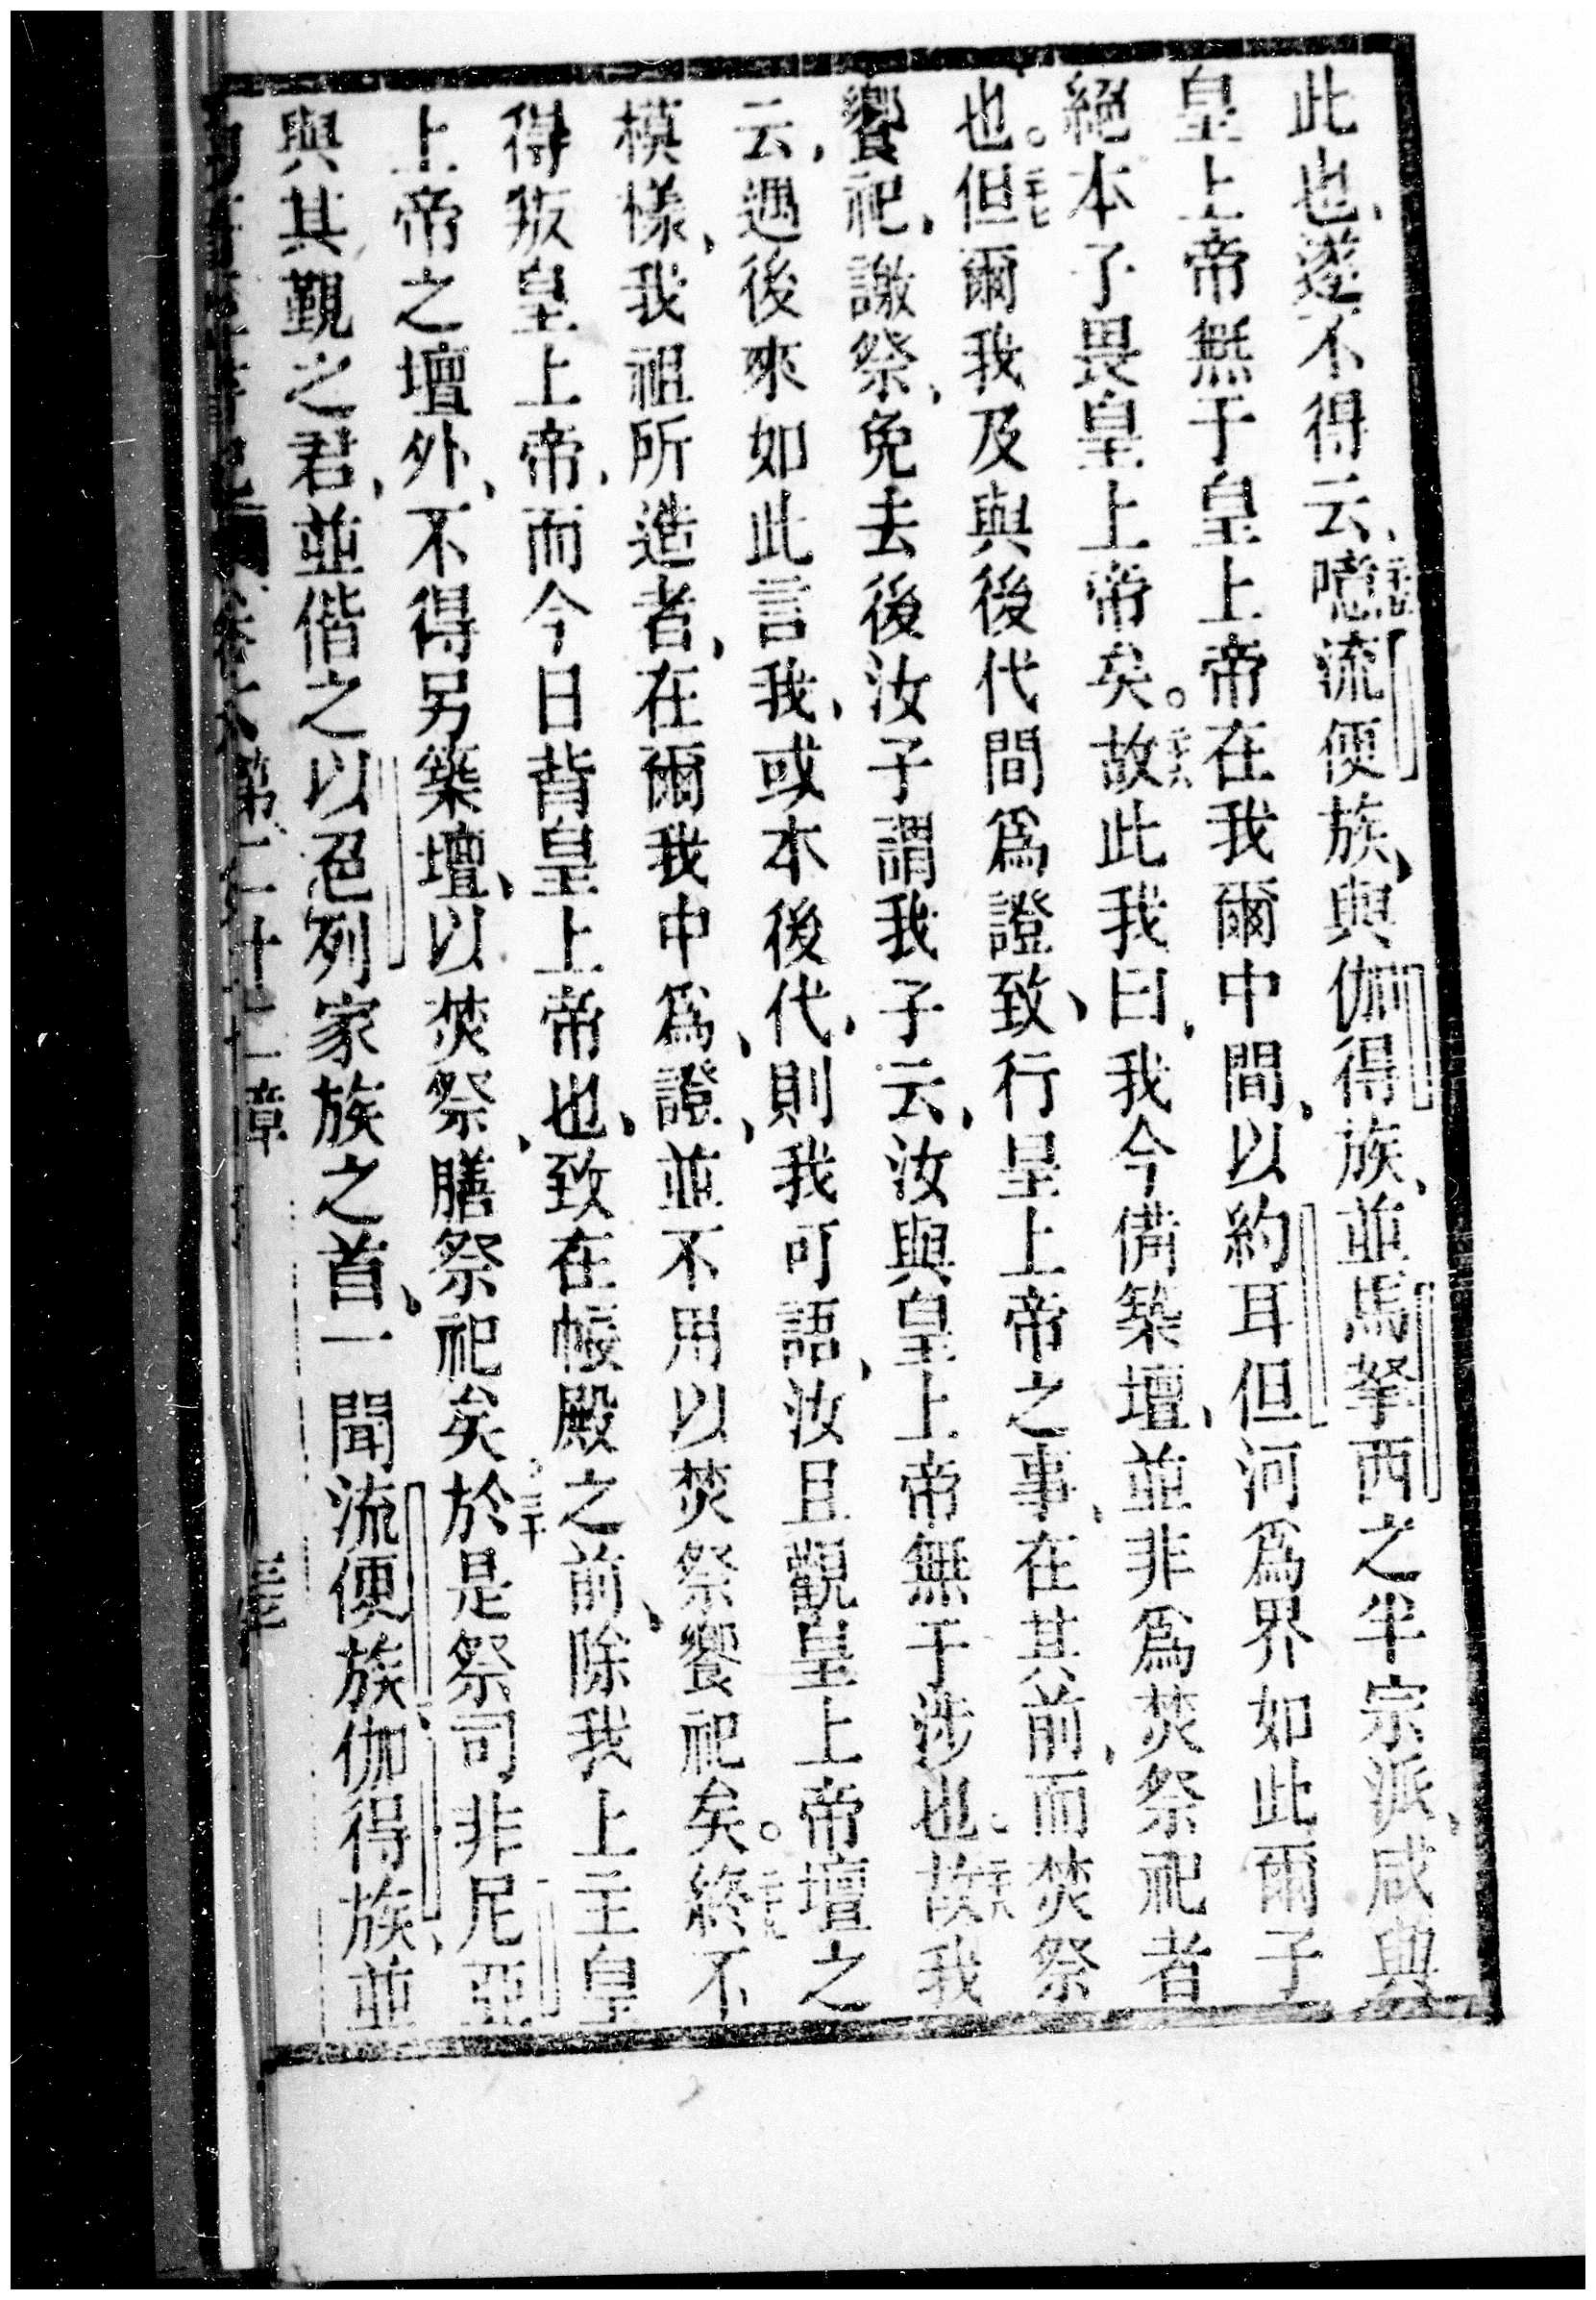 此也、遂不得云、二十五噫流便族、與伽得族、並馬拏西之半宗派、咸與
皇上帝無干皇上帝在我爾中間、以約耳但河爲界如此爾子
絕本子畏皇上帝矣。二十六故此我曰、我今備築壇、並非爲焚祭祀者
也。二十七但爾我及與後代間爲證致、行皇上帝之事、在其前、而焚祭
饗祀、謝祭、免去後汝子謂我子云、汝與皇上帝無干涉也。二十八故我
云、遇後來如此言我、或本後代、則我可語、汝且觀皇上帝壇之
模樣、我祖所造者、在爾我中爲、證、並不用以焚祭饗祀矣。二十九終不
得叛皇上帝、而今日背皇上帝也、致在帳殿之前、除我上主皇
上帝之壇外、不得另築壇、以焚祭、膳祭祀矣。三十於是祭司非尼亞
與其觀之君、並偕之以色列家族之首、一聞流便族、伽得族、並
第二十二章